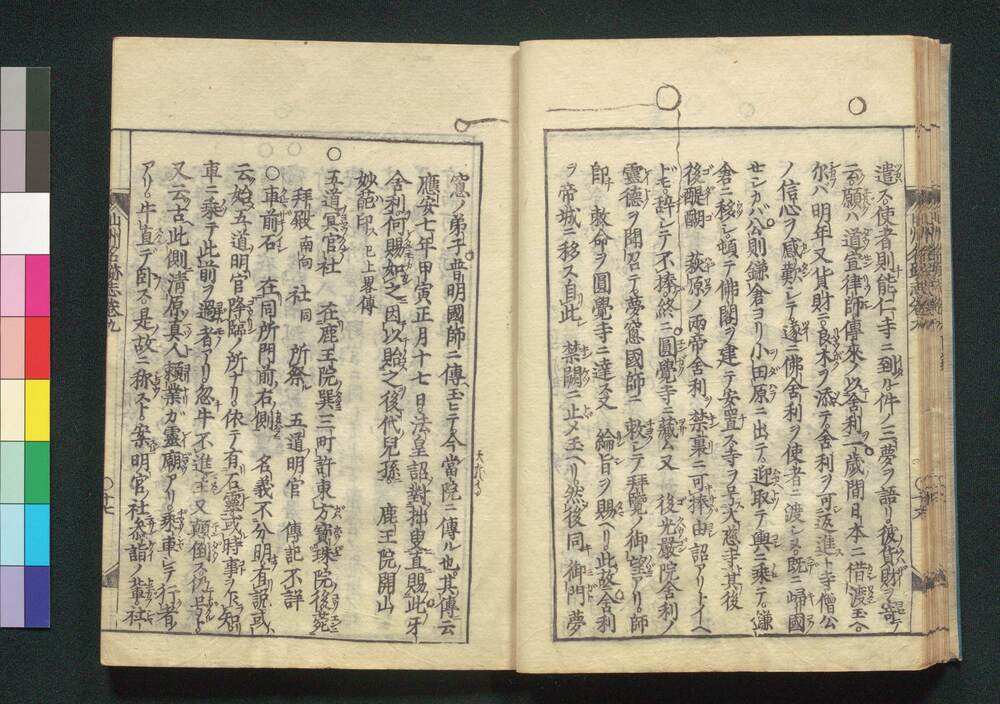 遣ス使者則能仁寺ニ到リ件ノ三夢ヲ語リ彼貨財ヲ寄テ
云願ハ道宣律師傳來ノ以舎利一歳間日本ニ借渡玉ヘ
尓ハ明年又貨財ニ良木ヲ添テ舎利ヲ可返進ト寺僧公
ノ信心ヲ感歎シテ遂ニ佛舎利ヲ使者ニ渡シヌ既ニ歸國
セシカバ公則鎌倉ヨリ小田原ニ出テ迎取テ輿ニ乗テ鎌
倉ニ移シ頓テ佛閣ヲ建テ安置ス寺ヲ号大慈寺其後
後醍醐 荻原ノ兩帝舎利ノ禁裏ニ可捧由詔アリトイヘ
ドモ辞シテ不捧終ニ圓覺寺ニ藏ム又 後光嚴院舎利ノ
靈德ヲ聞召テ夢窓國師ニ 敕シテ拜覽ノ御望アリ師
即 敕命ヲ圓覺寺ニ達ス又 綸旨ヲ賜ヘリ此故舎利
ヲ帝城ニ移ス自此 禁闕ニ止メ玉ヘリ然後同御門夢
窓ノ弟子普明國師ニ傳玉ヒテ今當院ニ傳ル也其傳云
應安七年甲寅正月十七日法皇詔對拙叟宣賜此牙
舎利何賜如之因以貽之後代兒孫 鹿王院開山
妙葩印 已上畧傳
五道冥官社 在鹿王院巽三町許東方寳珠院後苑
拜殿 南向 社 同 所祭 五道明官 傳記不詳
○車前石 在同所門前右側 名義不分明有説或
云始五道明官降臨ノ所ナリ依テ有石靈或時事ヲ不知
車ニ乗テ此前ヲ過者アリ忽牛不進車又顛倒ス
又云古此側清原真人頼業ガ靈廟アリ乘車シテ行者
アリ牛直ニ臥ス是故ニ称スト案明官社参詣ノ輩社
山州名跡志巻九
○十七